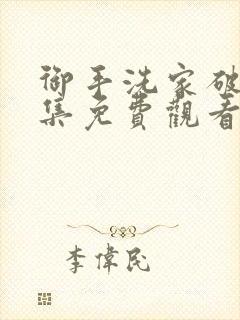 御手洗家破
集免費觀看
李偉民